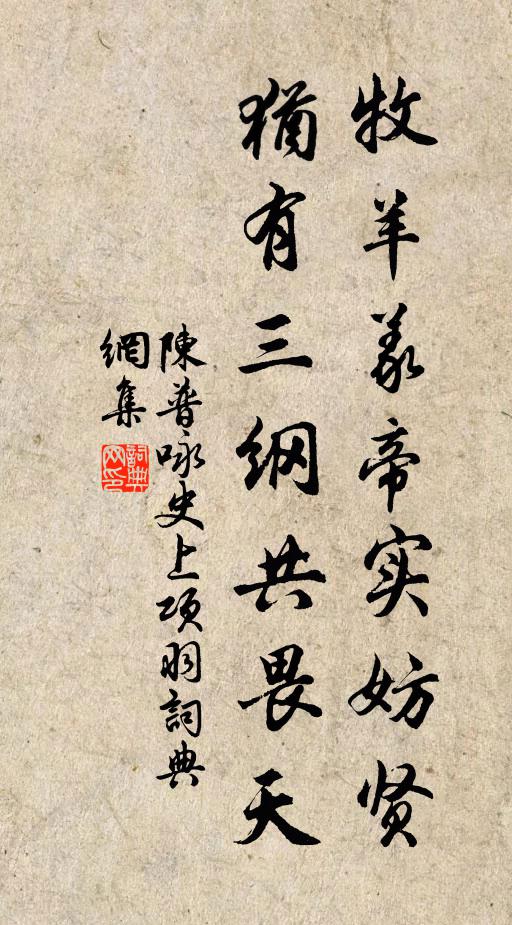 牧羊义帝实妨贤
猶有三纲共畏天
陳普咏史上项羽詞典
網集
詞典
网印